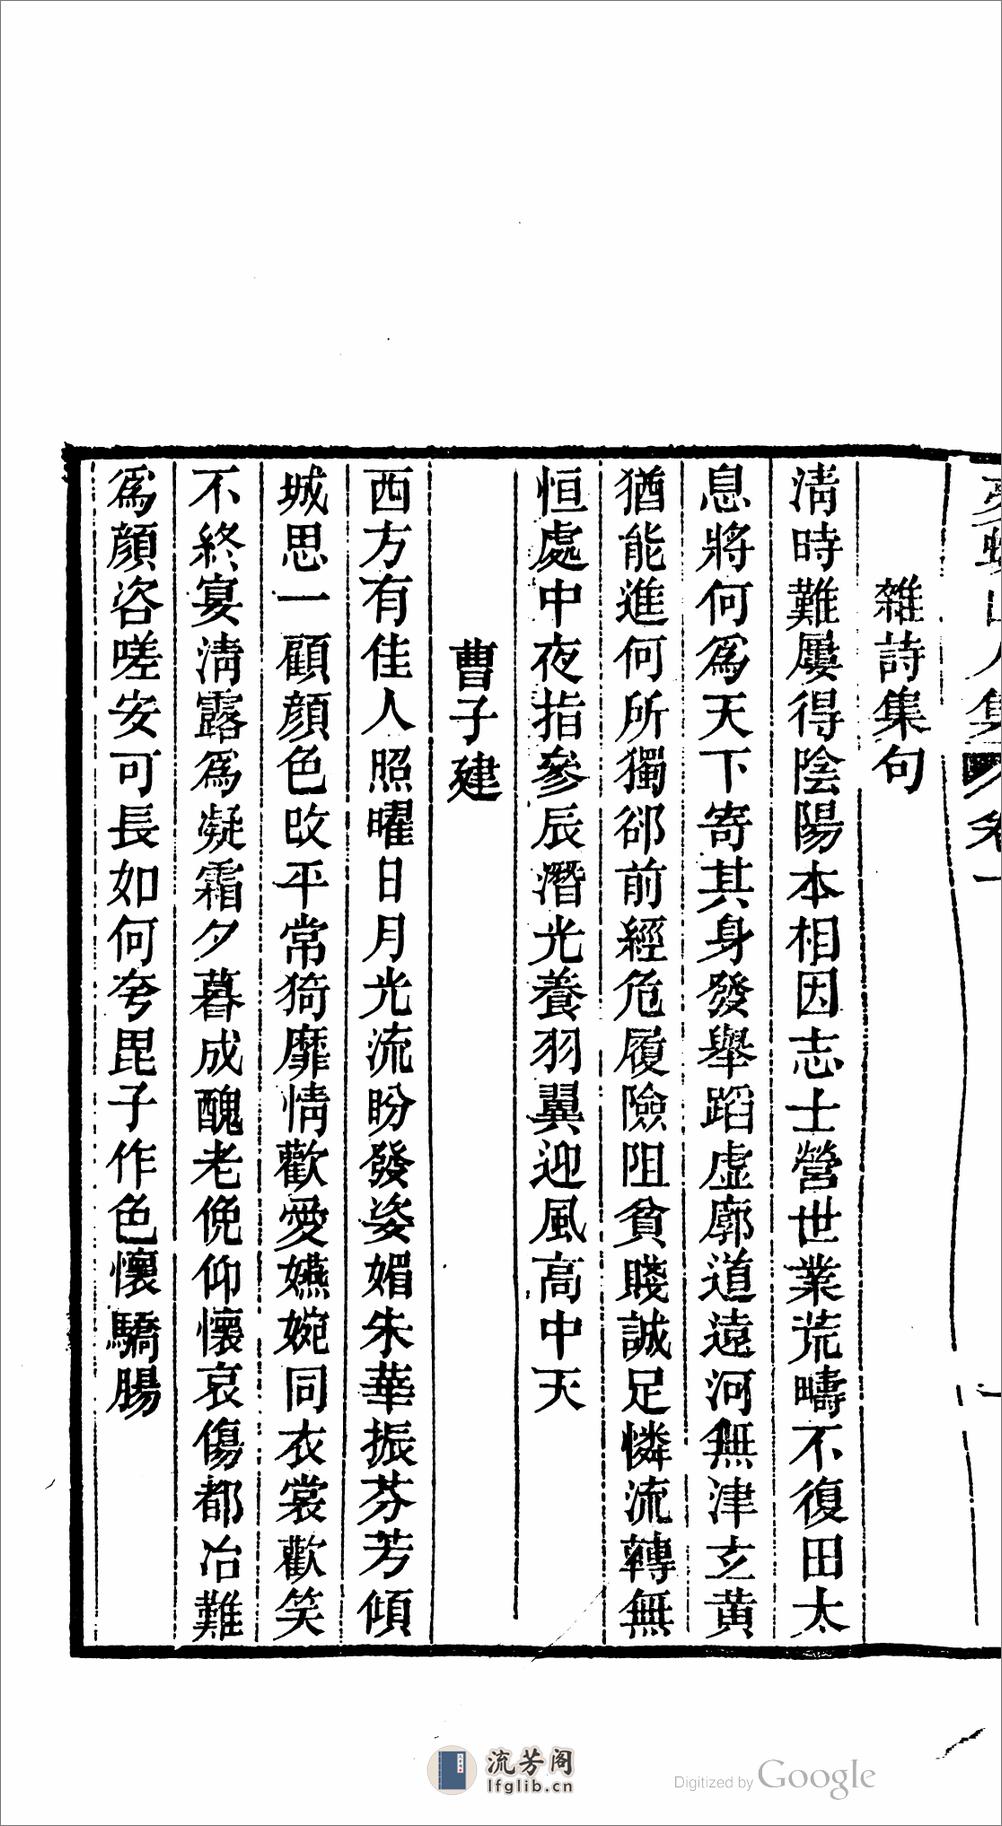 雜詩集句
淸時難屢得陰陽本相因志士營世業荒疇不復田太
息將何爲天下寄其身發舉蹈虛廓道遠河無津玄黃
猶能進何所獨郤前經危履險阻貧賤誠足憐流轉無
恒處中夜指參辰潛光養羽翼迎風高中天
曹子建
西方有佳人照曜日月光流盼發姿媚朱華振芬芳傾
城思一顧顏色改平常猗靡情歡愛嬿婉同衣裳歡笑
不終宴淸露爲凝霜夕暮成醜老俛仰懷哀傷都冶難
爲顏咨嗟安可長如何夸毘子作色懷驕腸
流芳阁
lfglib.cn
Digitized by Google